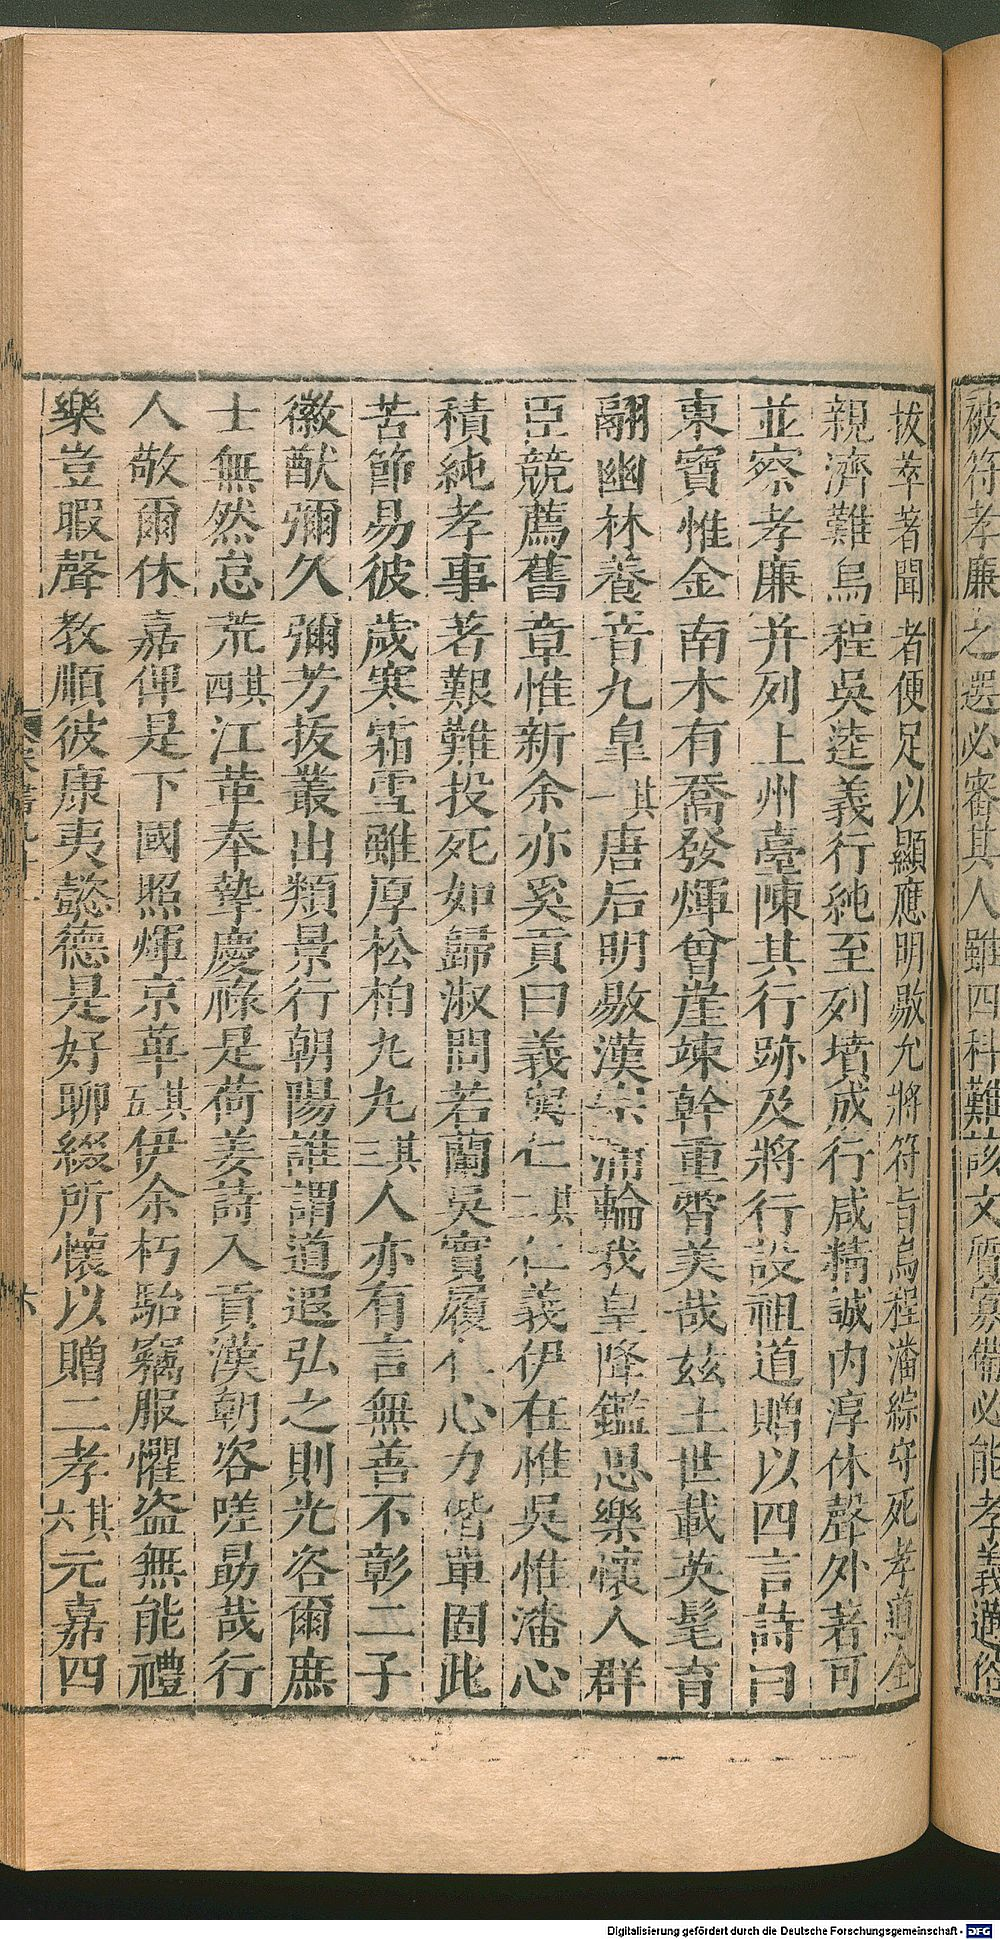 被符孝廉之選必審其人雖四科難該文質寡備必能孝義邁俗
拔萃著聞者便足以顯應明敭允將符旨烏程潘綜守死孝道全
親濟難烏程吳逵義行純至列墳成行咸精誠內淳休聲外著可
並察孝廉并列上州臺陳其行跡及將行設祖道贈以四言詩曰
東寶惟金南木有喬發煇曾崖竦幹重霄美哉茲土世載英髦育
翮幽林養音九皐其一唐后明敭漢宗蒲輪我皇隆鑑思樂懷人群
臣競薦舊章惟新余亦奚貢曰義與仁其二仁義伊在惟吳惟潘心
積純孝事著艱難投死如歸淑問若蘭吳實履仁心力偕單固此
苦節易彼歲寒霜雪雖厚松柏九九其三人亦有言無善不彰二子
徽猷彌久彌芳拔叢出類景行朝陽誰謂道遐弘之則光咨爾庶
士無然怠荒其四江革奉摯慶祿是荷姜詩入貢漢朝咨嗟勗哉行
人敬爾休嘉俾是下國照煇京華其五伊余朽駘竊服懼盜無能禮
樂豈暇聲教順彼康夷懿德是好聊綴所懷以贈二孝其六元嘉四
六
Digitalisierung gefördert durch die Deutsche Forschungsgemeinschaft - DFG